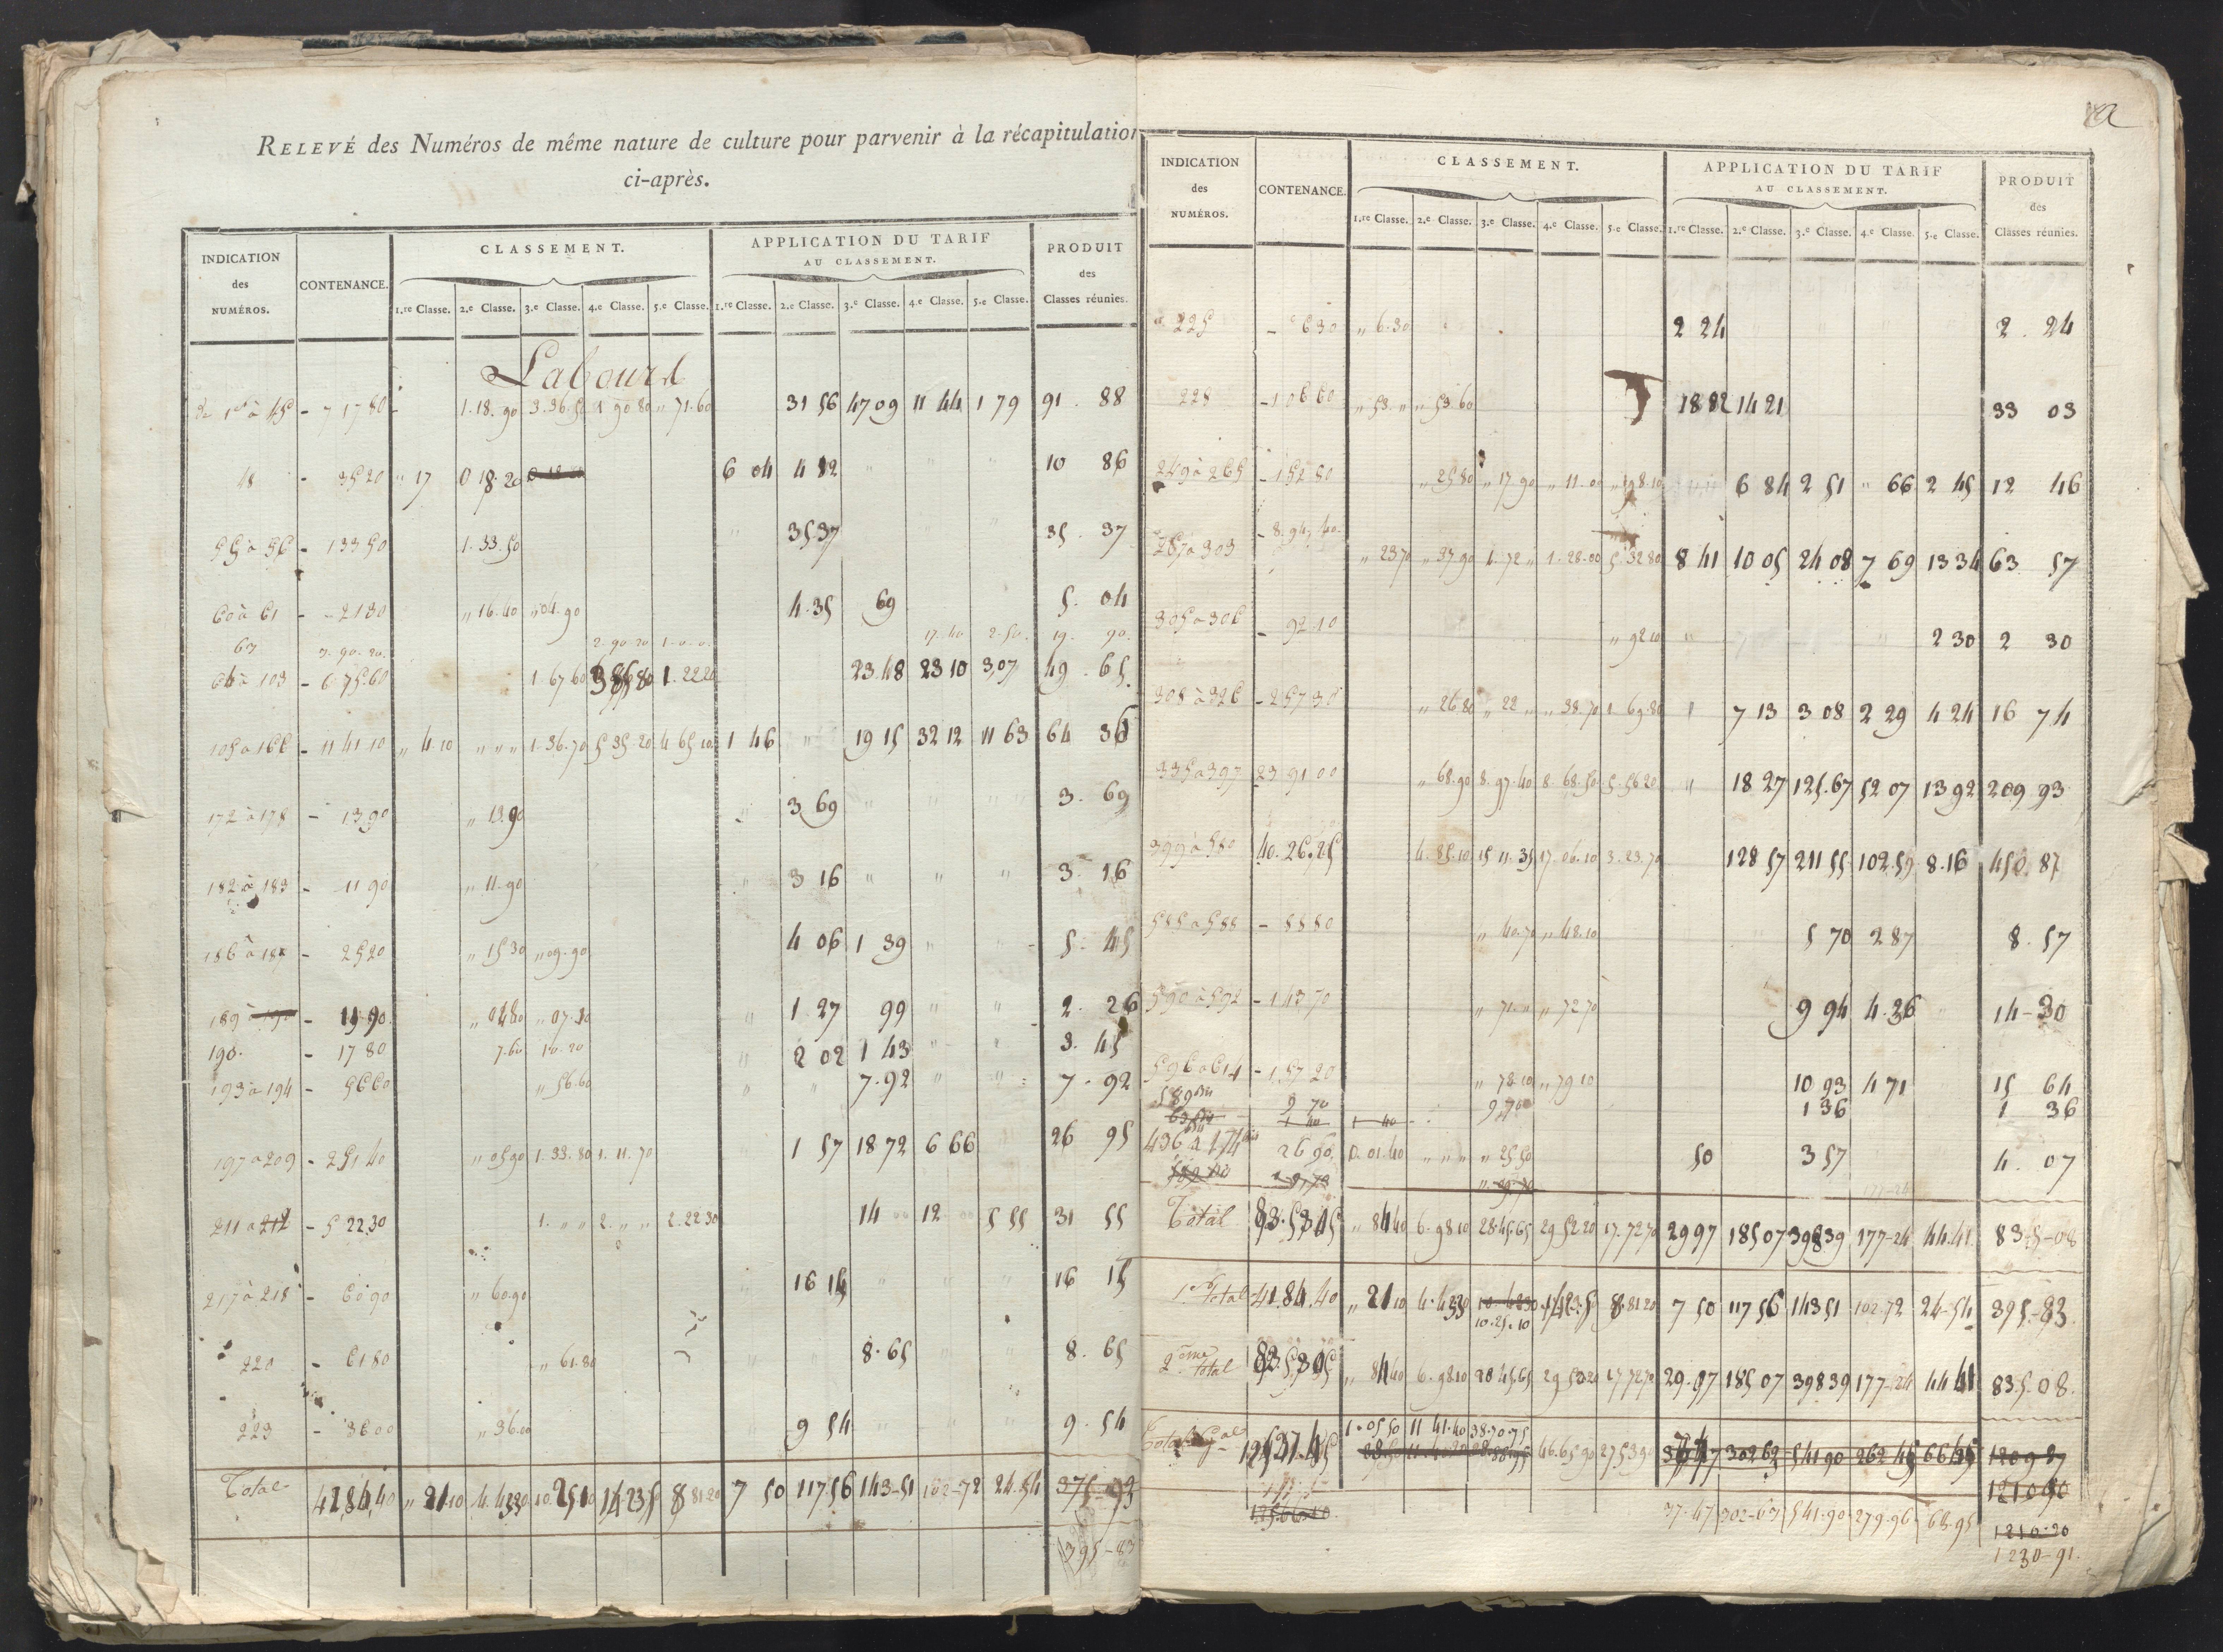 RELEVÉ des Numéros de même nature de culture pour parvenir à la récapitulation
ci-après.
INDICATION des NUMÉROS. CONTENANCE. CLASSEMENT. APPLICATION DU TARIF AU CLASSEMENT. PRODUIT des Classes réunies.
1.re Classe. 2.e Classe. 3.e Classe. 4.e Classe. 5.e Classe. 1.re Classe. 2.e Classe. 3.e Classe. 4.e Classe. 5.e Classe.
Labourd
1 à 45 - 7 17 80 1.18.90 3.36.50 1 90 80 " 71.60 31 56 47 09 11 44 1 79 91 . 88
48 - 35 20 " 17 0 18.20 6 04 4 82 " " " 10 86
55 à 56 - 1 33 50 1.33.50 " 35 37 " " 35 . 37
60 à 61 - 21 30 " 16.40 " 04.90 4.35 69 5 . 04
63 3.90.20. 2.90.20 1.0.0. 17.40 2.50. 19. 90.
64 à 103 - 6.75.60 1.67.60 3 85 80 1.22 20 23.48 23 10 3,07 49 . 65
105 à 166 - 11 41 10 " 4.10 " " " 1.36.70 5 35.20 4 65 10 1 46 " 19 15 32 12 11 63 64 36
172 à 178 - 13 90 " 13.90 " 3 69 " " " 3. 69
182 à 183 - 11 90 " 11.90 " 3 16 " " " 3. 16
186 à 188 - 25 20 " 15 30 " 09.90 4 06 1 39 " " 5. 45
189 - 11 90 " 04 80 " 07.10 " 1 27 99 " " 2. 26
190. - 17 80 7.60 10.20 " 2 02 1 43 " " 3. 45
193 à 194 - 56 60 " 56.60 " " 7.92 " " 7. 92
197 à 209 - 2 51 40 " 05 90 1.33.80 1.11.70 1 57 18 72 6 66 26 95
211 à 212 - 5 22 30 1. " " 2. " " 2.22 30 14 00 12 00 5 55 31 55
217 à 218 - 60 90 " 60.90 16 15 " " " 16 15
220 - 61 80 " 61.80 " " 8.65 " " 8. 65
223 - 36 00 " 36.00 9 54 " " " 9. 54
Total 41,84,40 " 21 10 4.43 30 10.25 10 14 23 5 8 81.20 7 50 117.56 143-51 102-72 24.54 375-93
395-83
INDICATION des NUMÉROS. CONTENANCE. CLASSEMENT. APPLICATION DU TARIF AU CLASSEMENT. PRODUIT des Classes réunies.
1.re Classe. 2.e Classe. 3.e Classe. 4.e Classe. 5.e Classe. 1.re Classe. 2.e Classe. 3.e Classe. 4.e Classe. 5.e Classe.
225 - 6 30 " 6.30 2 24 2 . 24
228 - 1 06 60 " 53. " " 53.60 18 82 14 21 33 03
249 à 265 - 1 52 80 " 25 80 " 17.90 " 11.00 " 98.10 6 84 2 51 " 66 2 45 12 46
267 à 303 - 8.94 40 " 23 70 " 37.90 1.72 " 1.28.00 5.32 80 8 41 10 05 24 08 7 69 13 34 63 57
305 à 306 - 92 10 " 92 10 " " 2 30 2 30
308 à 326 - 2 57 30 " 26.80 " 22 " " 38.70 1 69.80 7 13 3 08 2 29 4 24 16 74
335 à 397 23 91 00 " 68.90 8.97.40 8.68.50 5.56 20 " 18 27 125.67 52 07 13 92 209 93
399 à 580 40.26,25 4.85.10 15 11.35 17.06.10 3.23.70 128 57 211 55 102.59 8.16 450.87
585 à 588 - 88 80 " 40.70 " 48.10 5 70 2 87 8. 57
590 à 592 - 1 43 70 " 71. " " 72 70 9 94 4.36 14-30
596 à 614 - 1,57 20 " 78.10 " 79 10 10 93 4 71 15 64
589 bis 9 70 9,70 1 36 1 36
1 40 1 40
436 à 174 26 90. 0.01.40 " " " " 25 50 50 3 57 4. 07
Total 83.53 45 " 84 40 6.98 10 28.45.65 29 52 20 17.72 70 29 97 185 07 398 39 177-24 44.41 83 5-08
1.er total 41.84.40 " 21 10 4.43 30 14 23 5 8 81 20 7 50 117 56 143 51 102.72 24-54 395-83
10.25.10
2.ème total 83.53 45 " 84 40 6.98 10 28 45 65 29 52 20 17 72 70 29.97 185 07 398 39 177-24 44 41 835.08.
Total G.al 125.37.85 1.05 50 11 41.40 38.70.75 46.65 90 27 53 90 302 62 541 90 262 45 66 45 1209 87
125.06.10 1210 90
37.47 302-63 541.90 279.96 68.95 1210-20
1230-91.